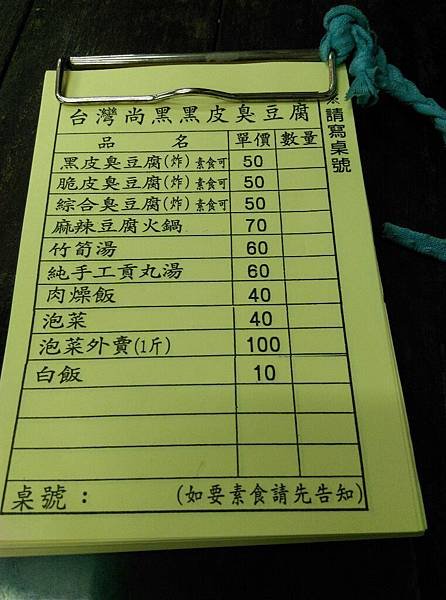 台灣尚黑黑皮臭豆腐
品名 單價 數量
黑皮臭豆腐(炸) 素食可 50
脆皮臭豆腐(炸) 素食可 50
綜合臭豆腐(炸) 素食可 50
麻辣豆腐火鍋 70
竹筍湯 60
純手工貢丸湯 60
肉燥飯 40
泡菜 40
泡菜外賣(1斤) 100
白飯 10
桌號： (如要素食請先告知)
請寫桌號